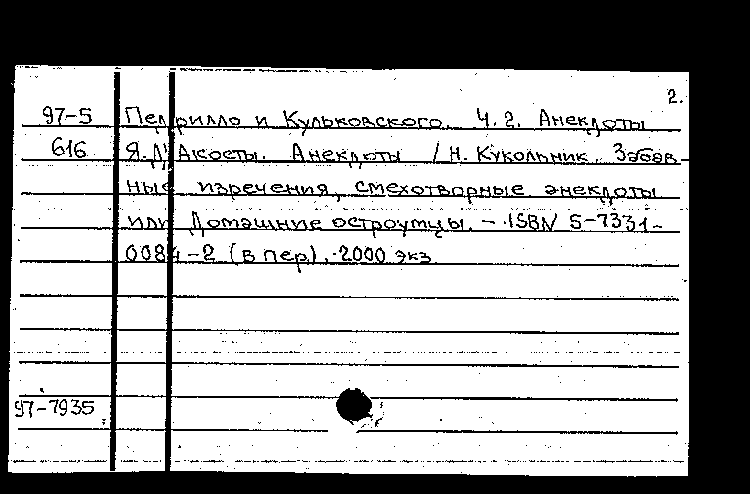 2.
97-5 Педрилло и Кульковского. Ч. 2. Анекдоты
616 Я.Д'Акосты. Анекдоты / Н. Кукольник. Забав-
ные изречения, смехотворные анекдоты
или Домашние остроумцы. – ISBN 5-7331-
0084-2 (в пер). 2000 экз
97-7935